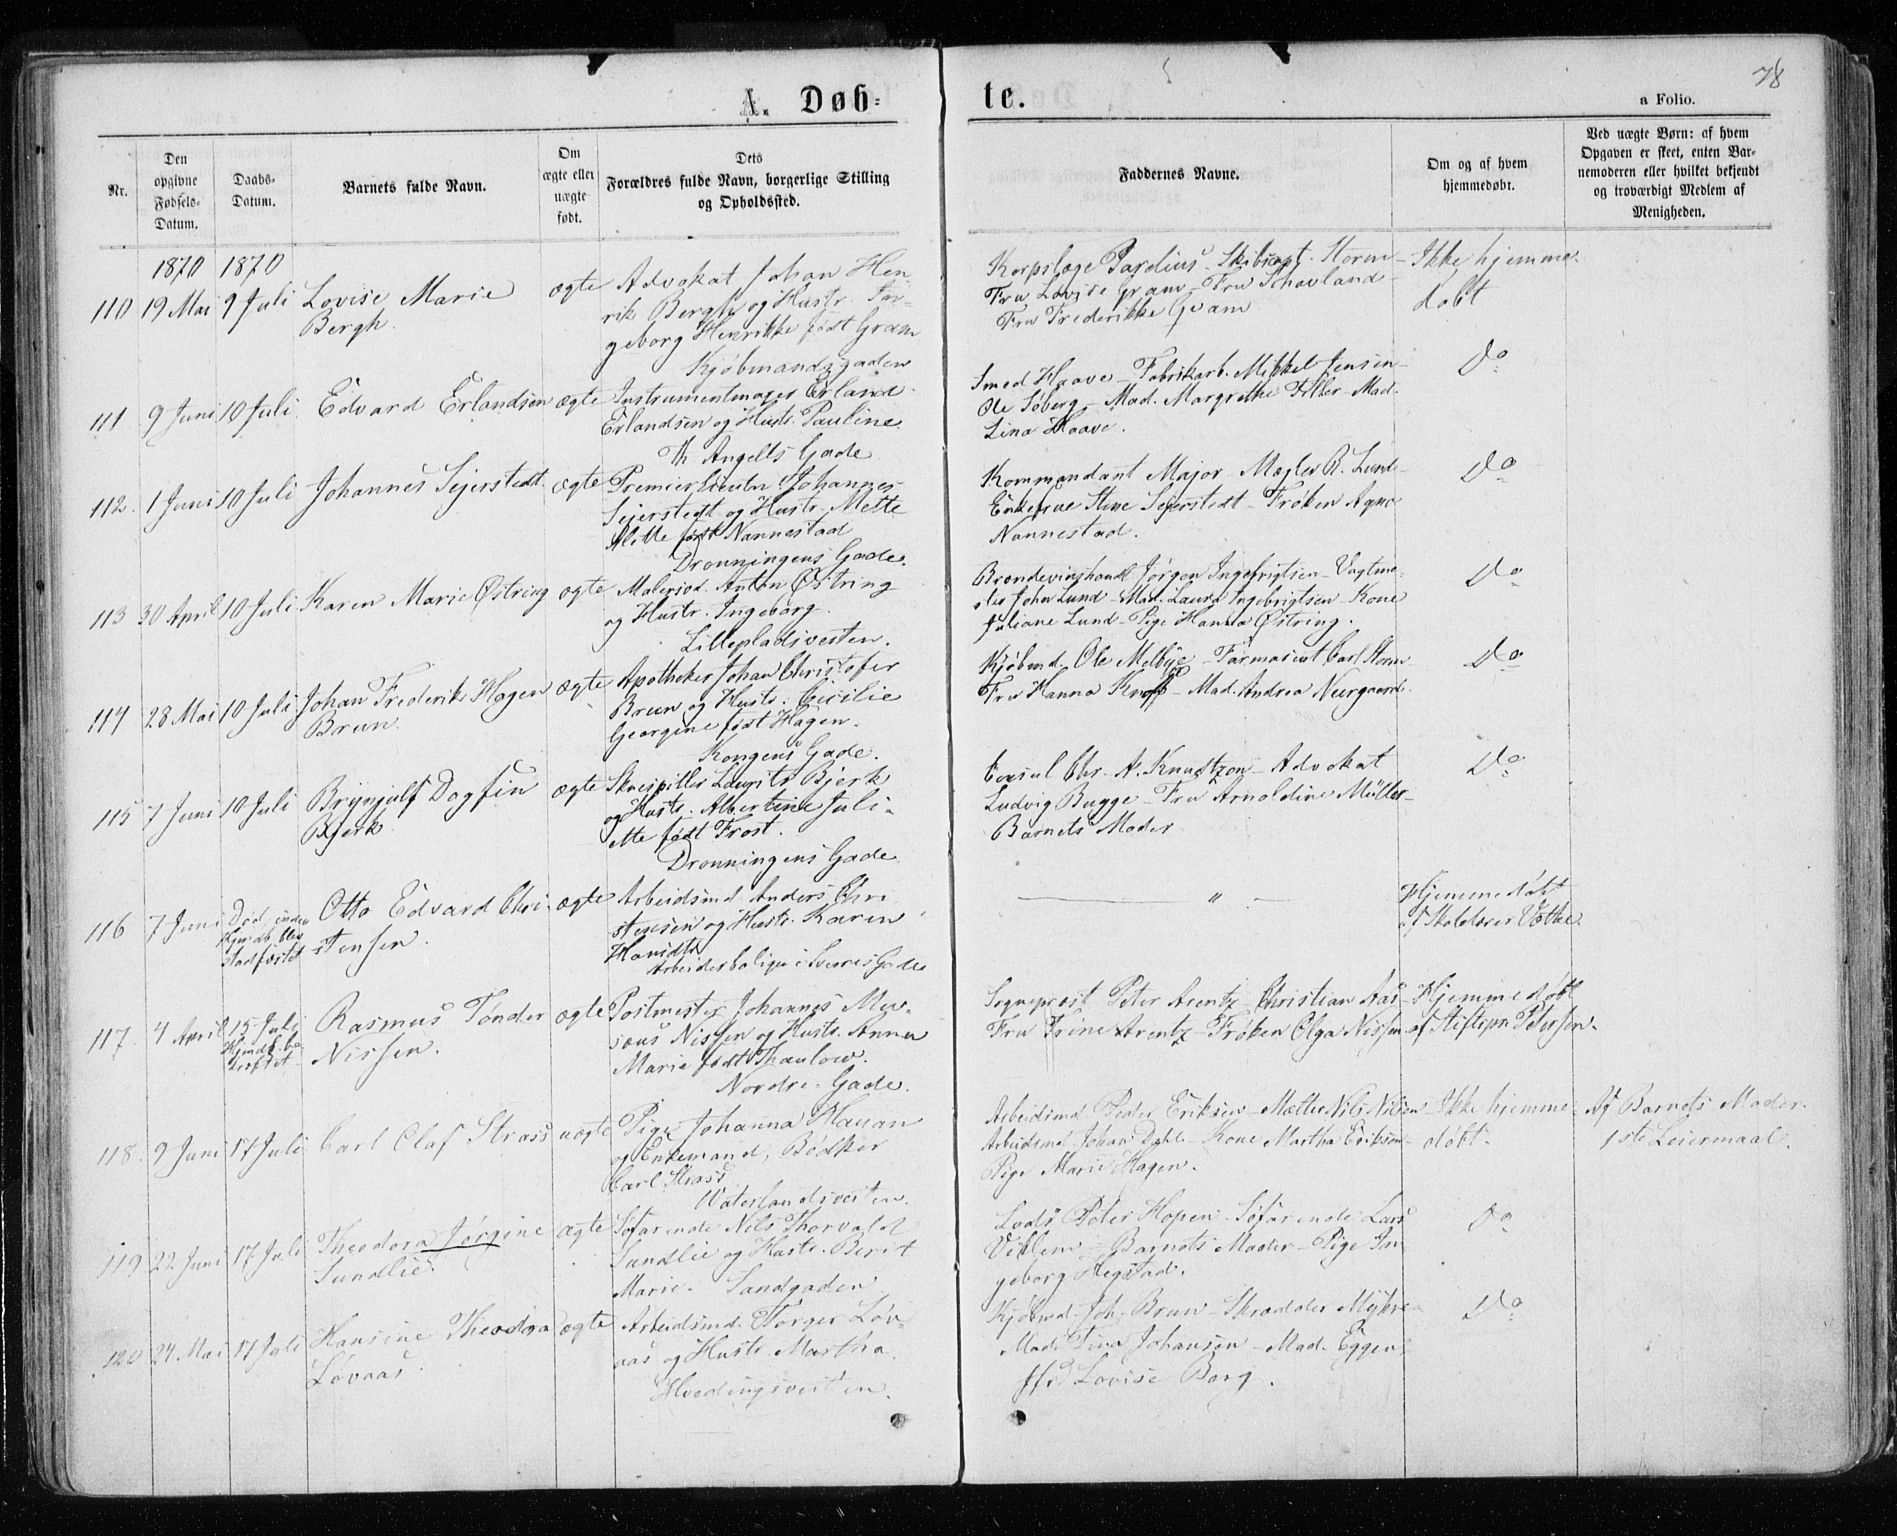 A. Døbte.
78
a Folio.
Nr.
Den opgivne Fødsels-Datum.
Daabs-Datum.
Barnets fulde Navn.
Om ægte eller uægte født.
Dets Forældres fulde Navn, borgerlige Stilling og Opholdssted.
Faddernes Navne.
Om og af hvem hjemmedøbt.
Ved uægte Børn: af hvem Opgaven er skeet, enten Barnemoderen eller hvilket bekjendt og troværdigt Medlem af Menigheden.
1870 1870
110 19 Mai 9 Juli Lovise Marie
Bergh.
ægte
Advokat Johan Hen
rik Bergh og Hustr.
geborg Henrikke født Gram
Kjøbmandsgaden
Korpslæge Storm
Fru Lovise Gram - Fru Schavland
Fru Frederikke Gram
Ikke hjemme
døbt
111 9 Juni 10 Juli Edvard Erlandsen ægte
Instrumentmager Erland
Erlandsen og Hustr. Pauline
Th. Angells Gade
Smed Haave - Fabrikarb. Mikkel Jensen
Ole Søberg - Mad. Margrethe - Mad.
Lina Haave.
Do
112. 1 Juni 10 Juli Johannes Sejerstedt ægte
Premierlieutn Johannes
Sejerstedt og Hustr. Mette
født Nannestad
Dronningens Gade.
Kommandant Major - Mægler R. Lund
Enkefrue Stine Sejerstedt - Frøken
Nannestad.
Do
113 30 April 10 Juli Karen Marie Østring ægte
Malersv. Anton Østring
og Hustr. Ingeborg.
Lillepladsvesten.
Brændevinshandl Jørgen Ingebrigtsen - Vagtme-
ster John Lund - Mad. Laura Ingebrigtsen - Kone
Juliane Lund - Pige Hanna Østring.
Do
114 28 Mai 10 Juli Johan Frederik Hagen
Brun.
ægte
Apotheker Johan Christofer
Brun og Hustr. Cecilie
Georgine født Hagen.
Kongens Gade.
Kjøbmd. Ole Melbye - Farmaseut Carl Storm
Fru Hanna Knoff - Mad. Andrea Neergaard.
Do
115 7 Juni 10 Juli Brynjulf Dagfin
Bjerk
ægte
Skuespiller Laurits Bjerk
og Hustr. Albertine Juli-
ette født Frost.
Dronningens Gade
Consul Chr. A. Knudtzon - Advokat
Ludvig Bugge - Fru Arnoldine Müller -
Barnets Moder
Do
116 7 Juni
Død inden
Hjmdb. blev
stadfæstet
Otto Edvard Chri-
stensen.
ægte
Arbeidsmd Anders Chri
stensen og Hustr. Karen
Hansdtr
Arbeiderboliger i Sverres Gade
"
Hjemmedøbt
af Skolelærer
117. 4 April 15 Juli
Rasmus Tønder
Nissen.
ægte
Postmester Johannes
Nissen og Hustr. Anna
Marie født Thaulow.
Nordre Gade.
Sogneprest Peter Arentz - Christian Aas -
Fru Trine Arentz - Frøken Olga Nissen
Hjemmedøbt
af Stiftspr. Petersen.
118. 9 Juni 17 Juli Carl Olaf Strass uægte
Pige Johanna Hauan
og Enkemand, Bødker
Carl Strass
Vaterlandsvesten.
Arbeidsmd Peder Eriksen - Nils Nilsen
Arbeidsmd. Johan Dahl - Kone Martha Eriksen
Pige Marie Hagen.
Ikke hjemme
døbt.
Af Barnets Moder.
1ste Leiermaal.
119 22 Juni 17 Juli Theodora Jørgine
Sundlie.
ægte
Søfarende Nils Thorvald
Sundlie og Hustr. Berit
Marie. Sandgaden
Lods Peter Hopen - Søfarende Lars
Viklem - Barnets Moder - Pige In
geborg Hegstad.
Do
120 24 Mai 17 Juli Hansine Theodora
Løvaas
ægte
Arbeidsmd. Torger Løv-
aas og Hustr. Martha
Hvedingsvesten.
Kjøbmd. Joh. Brun - Skrædder Myhre
Mad. Tina Johansen - Mad. Eggen
Lovise Borg.
Do